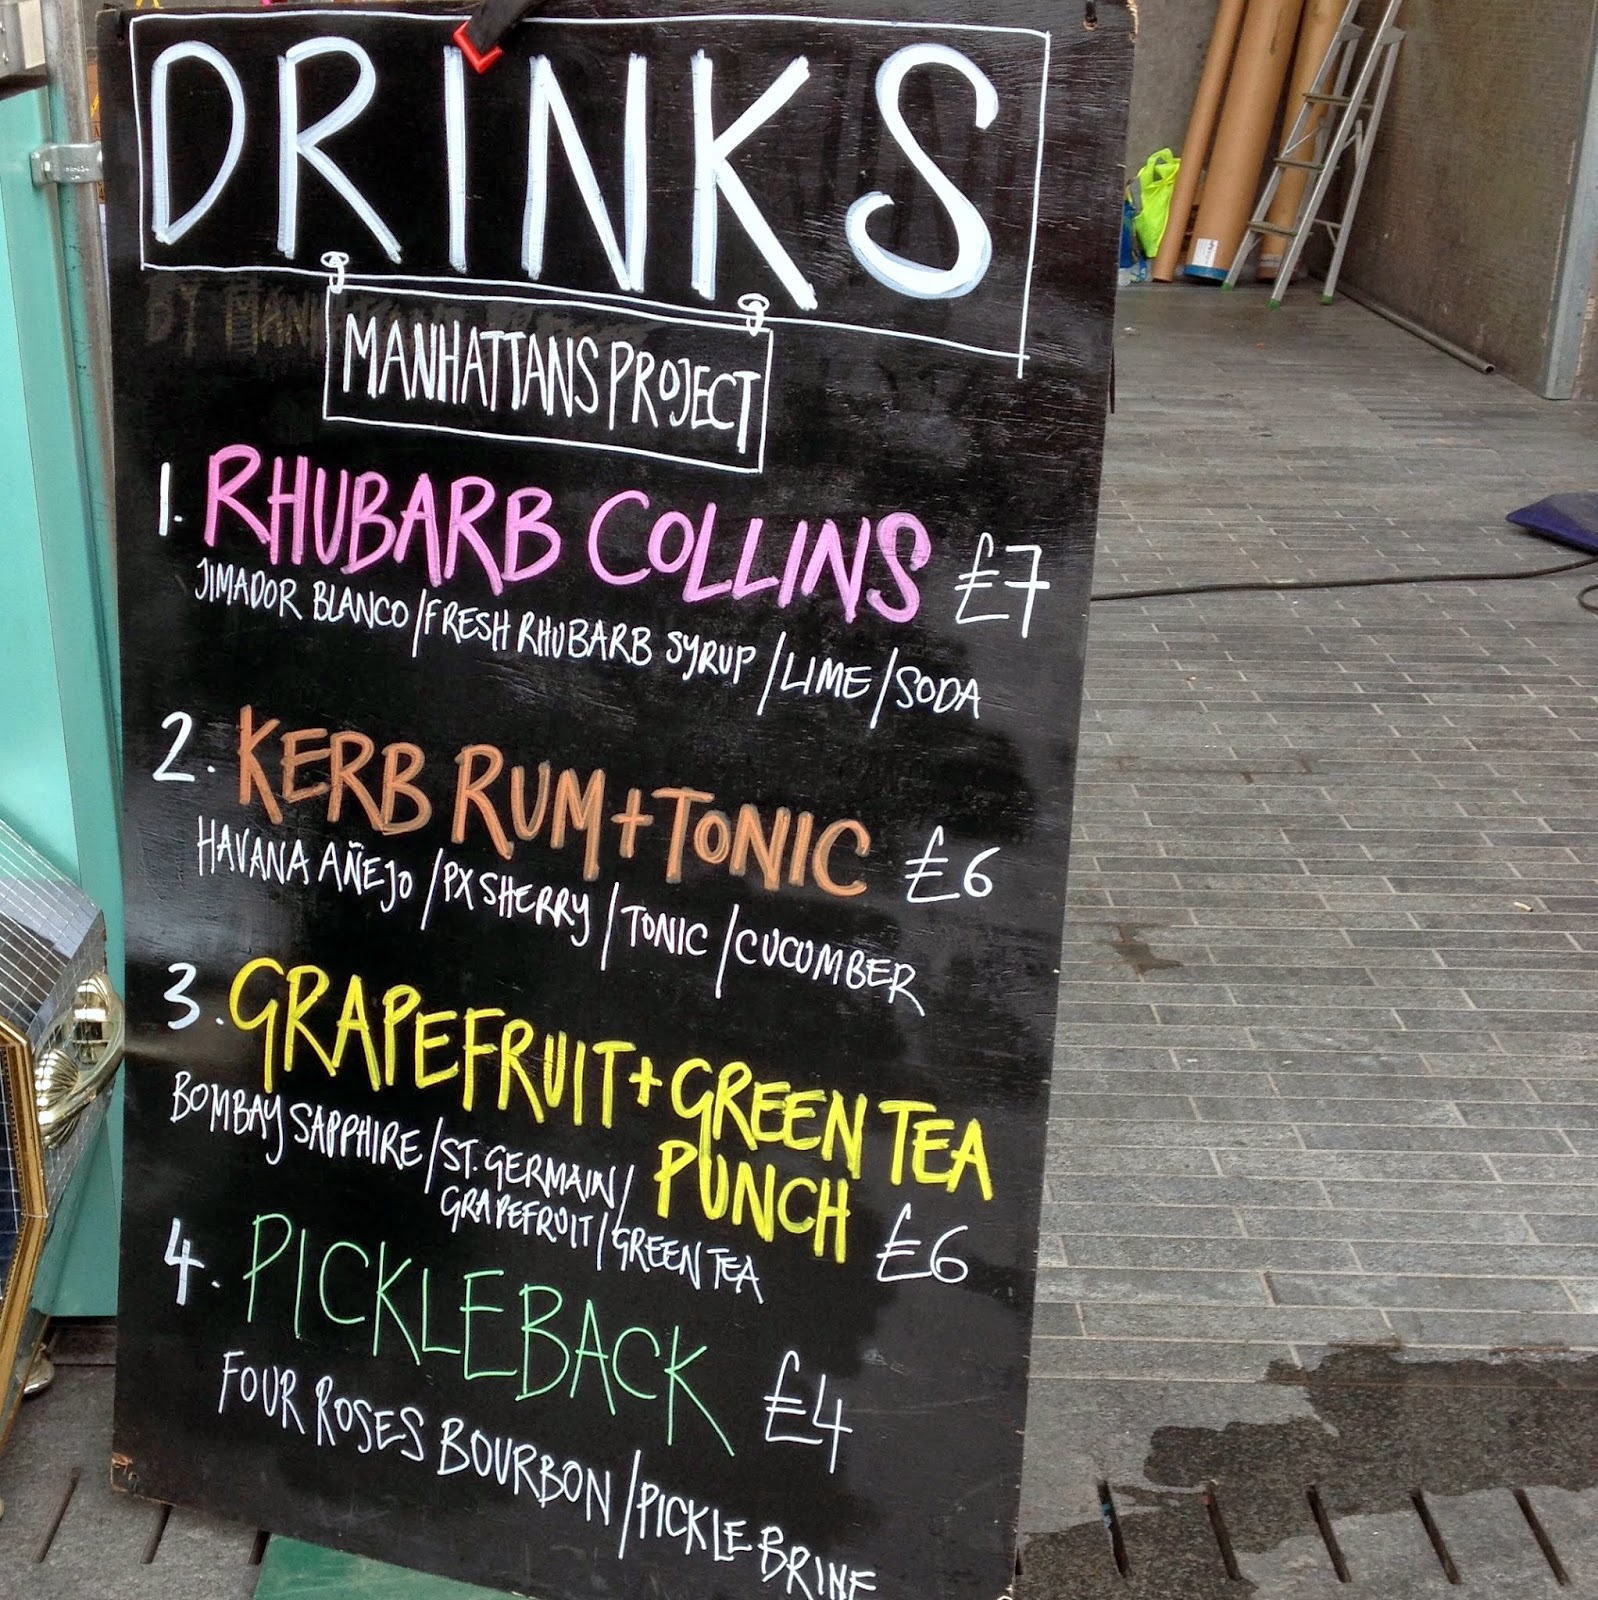 DRINKS
BY MAN
MANHATTANS PROJECT
1. RHUBARB COLLINS £7
JIMADOR BLANCO/FRESH RHUBARB SYRUP/LIME/SODA
2. KERB RUM+TONIC £6
HAVANA AÑEJO/PX SHERRY/TONIC/CUCUMBER
3. GRAPEFRUIT+GREEN TEA
PUNCH £6
BOMBAY SAPPHIRE/ST. GERMAIN/
GRAPEFRUIT/GREEN TEA
4. PICKLEBACK £4
FOUR ROSES BOURBON/PICKLE BRINE